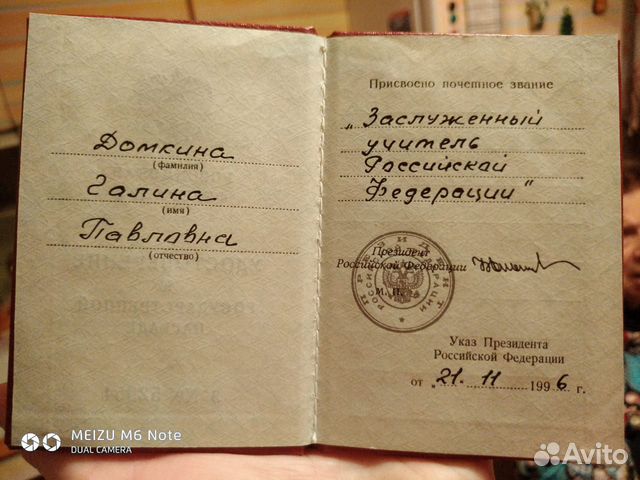 Домкина
(фамилия)
Галина
(имя)
Павловна
(отчество)
Присвоено почетное звание
„Заслуженный
учитель
Российской
Федерации“
Президент
Российской Федерации
М. П.
Указ Президента
Российской Федерации
от „21. 11 1996 г.
MEIZU M6 Note
DUAL CAMERA
Avito